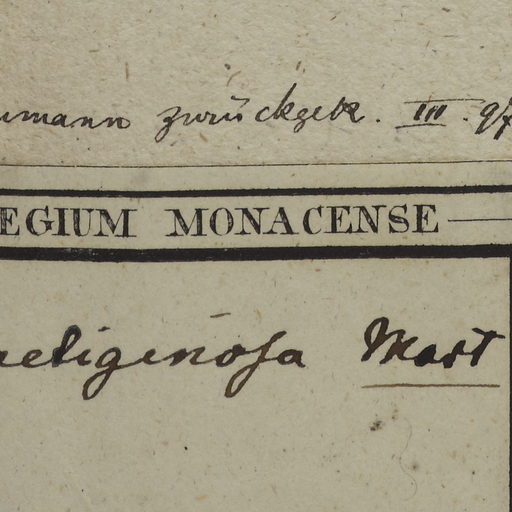 umann zurückgek. III. 97
EGIUM MONACENSE
netiginosa Mart